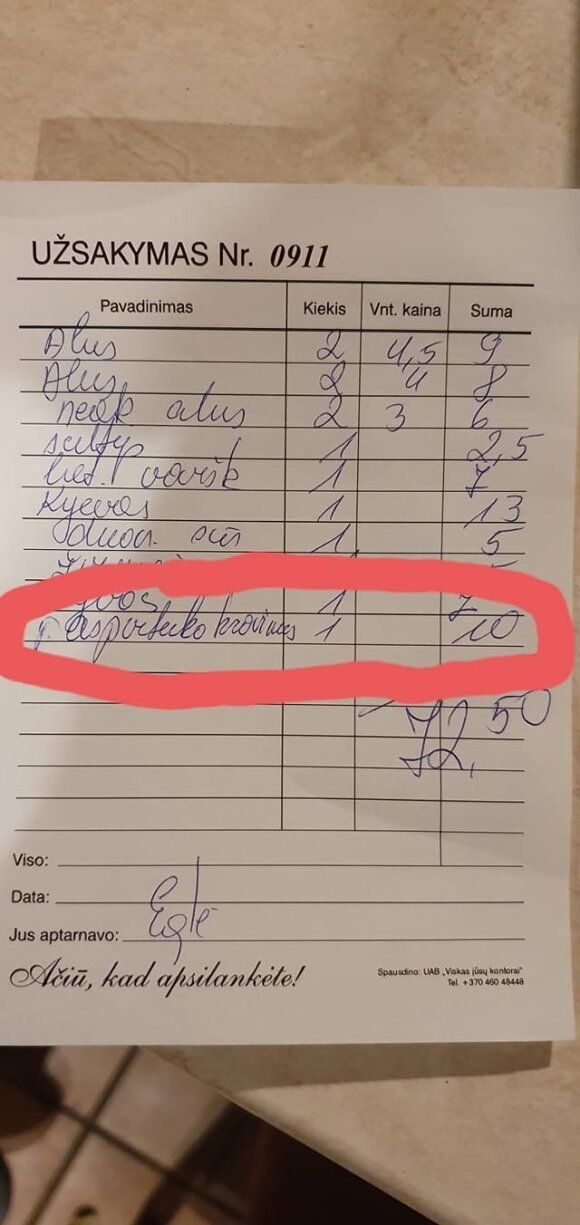 UŽSAKYMAS Nr. 0911
Pavadinimas Kiekis Vnt. kaina Suma
Alus 2 4,5 9
Alus 2 4 8
nealk alus 2 3 6
sultys 1 2,5
liet. varšk 1 7
Kyevas 1 13
duon. sūr 1 5
1 7
krovimas 1 10
72,50
Viso:
Data:
Jus aptarnavo: Eglė
Ačiū, kad apsilankėte!
Spausdino: UAB „Viskas jūsų kontorai"
Tel. +370 460 48448